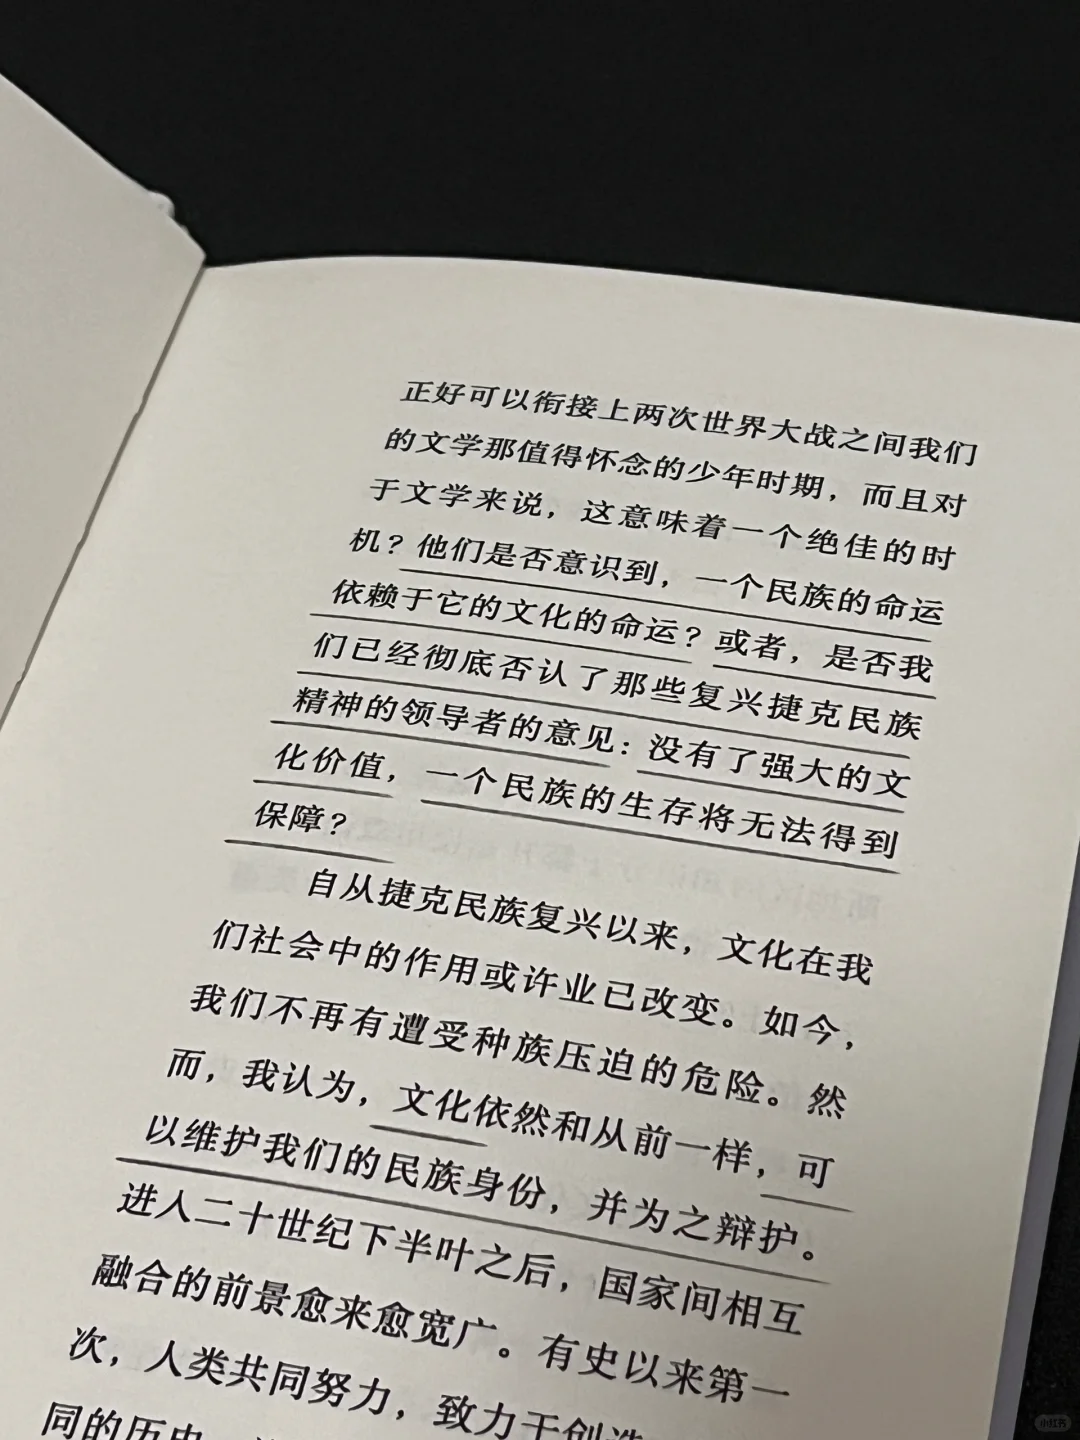 正好可以衔接上两次世界大战之间我们
的文学那值得怀念的少年时期，而且对
于文学来说，这意味着一个绝佳的时
机？他们是否意识到，一个民族的命运
依赖于它的文化的命运？或者，是否我
们已经彻底否认了那些复兴捷克民族
精神的领导者的意见：没有了强大的文
化价值，一个民族的生存将无法得到
保障？
自从捷克民族复兴以来，文化在我
们社会中的作用或许业已改变。如今，
我们不再有遭受种族压迫的危险。然
而，我认为，文化依然和从前一样，可
以维护我们的民族身份，并为之辩护。
进入二十世纪下半叶之后，国家间相互
融合的前景愈来愈宽广。有史以来第一
次，人类共同努力，致力于创造
同的历史
小红书